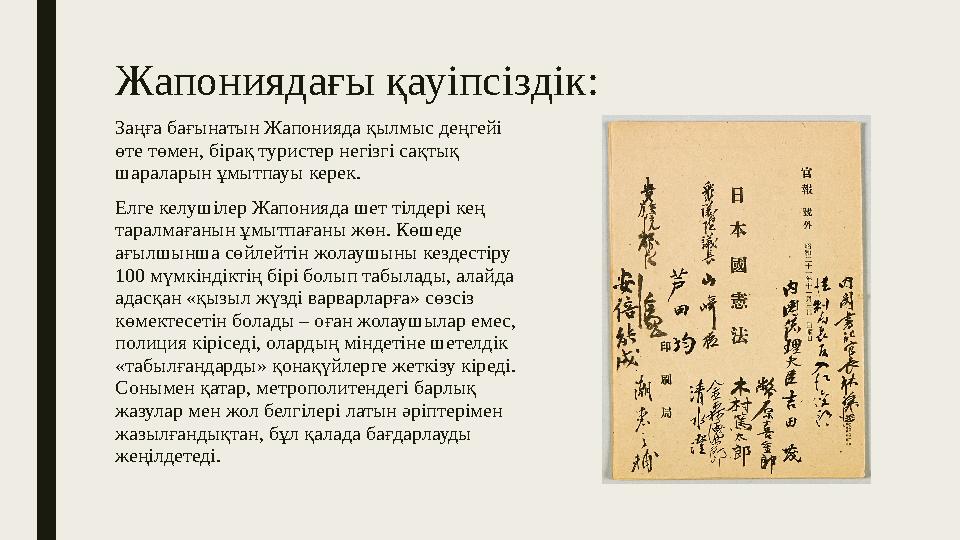 Жапониядағы қауіпсіздік:
Заңға бағынатын Жапонияда қылмыс деңгейі
өте төмен, бірақ туристер негізгі сақтық
шараларын ұмытпауы керек.
Елге келушілер Жапонияда шет тілдері кең
таралмағанын ұмытпағаны жөн. Көшеде
ағылшынша сөйлейтін жолаушыны кездестіру
100 мүмкіндіктің бірі болып табылады, алайда
адасқан «қызыл жүзді варварларға» сөзсіз
көмектесетін болады – оған жолаушылар емес,
полиция кіріседі, олардың міндетіне шетелдік
«табылғандарды» қонақүйлерге жеткізу кіреді.
Сонымен қатар, метрополитендегі барлық
жазулар мен жол белгілері латын әріптерімен
жазылғандықтан, бұл қалада бағдарлауды
жеңілдетеді.
官報 號外
日本國憲法
印刷局
內閣総理大臣吉田茂
幣原喜重郎
木村篤太郎
芦田均
清水澄
安倍能成